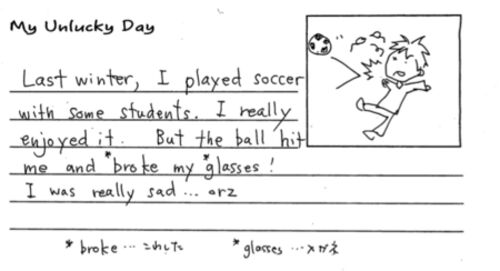 My Unlucky Day
Last winter, I played soccer
with some students. I really
enjoyed it. But the ball hit
me and *broke my *glasses!
I was really sad... orz
*broke … こわした *glasses … メガネ